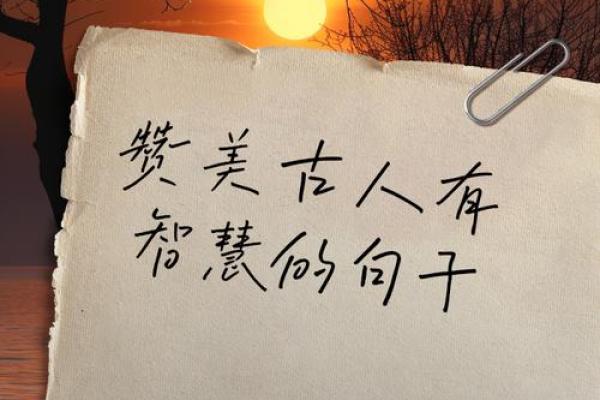 赞美古人有
智慧的句子